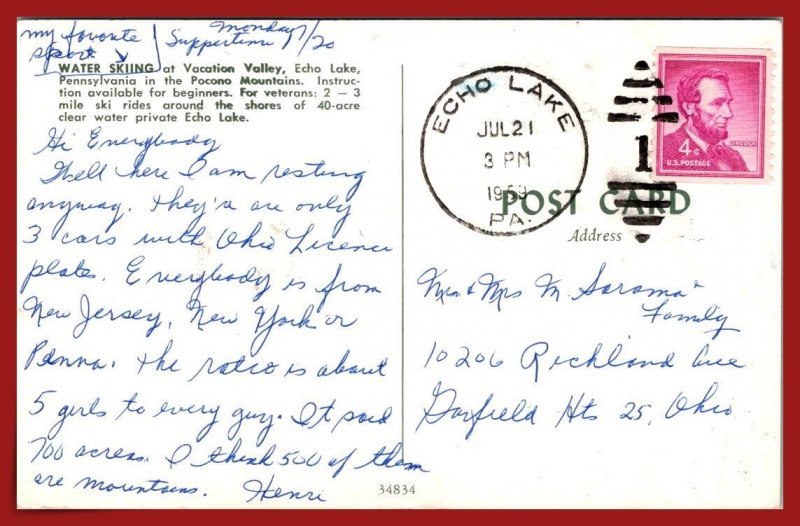 my favorite
sport
Monday 7/20
Suppertime
WATER SKIING at Vacation Valley, Echo Lake,
Pennsylvania in the Pocono Mountains. Instruc-
tion available for beginners. For veterans: 2 — 3
mile ski rides around the shores of 40-acre
clear water private Echo Lake.
Hi Everybody
Well here I am resting
anyway. They're are only
3 cars with Ohio Licence
plates. Everybody is from
New Jersey, New York or
Penna. The ratio is about
5 girls to every guy. It said
700 acres. I think 500 of them
are mountains. Henri
34834
ECHO LAKE
JUL 21
3 PM
1959
PA.
1
4¢
LINCOLN
U.S. POSTAGE
POST CARD
Address
Mr. & Mrs M. Sarama &
Family
10206 Richland Ave
Garfield Hts 25, Ohio